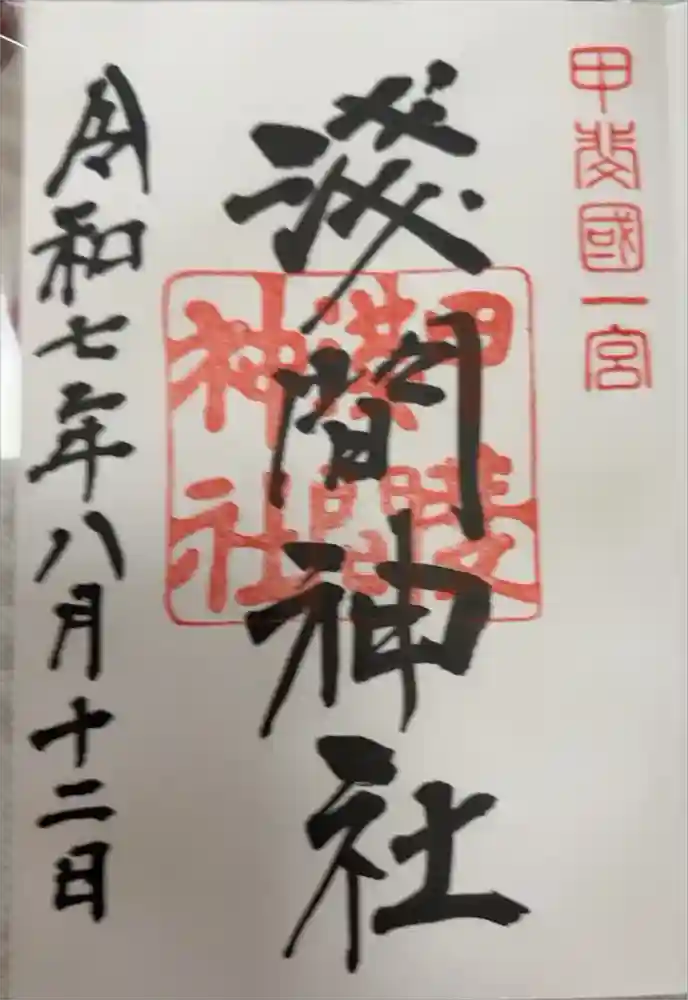 甲斐國一宮
淺間神社
間
神社
令和七年八月十二日